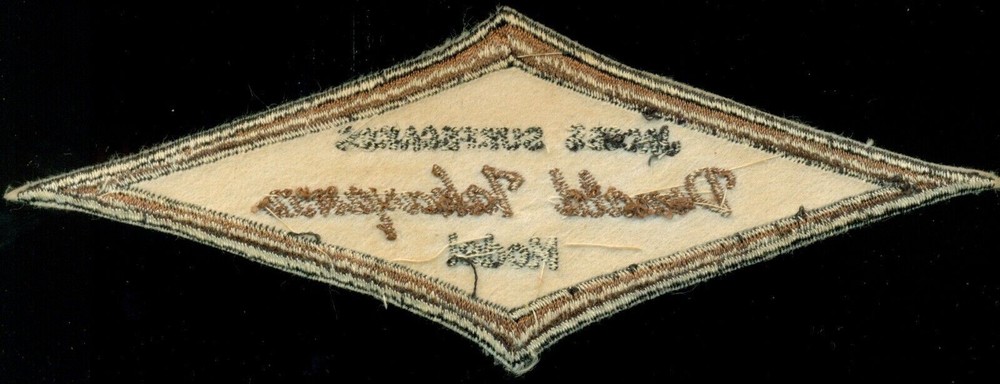 SURFBOARDS
Donald Takayama
Model